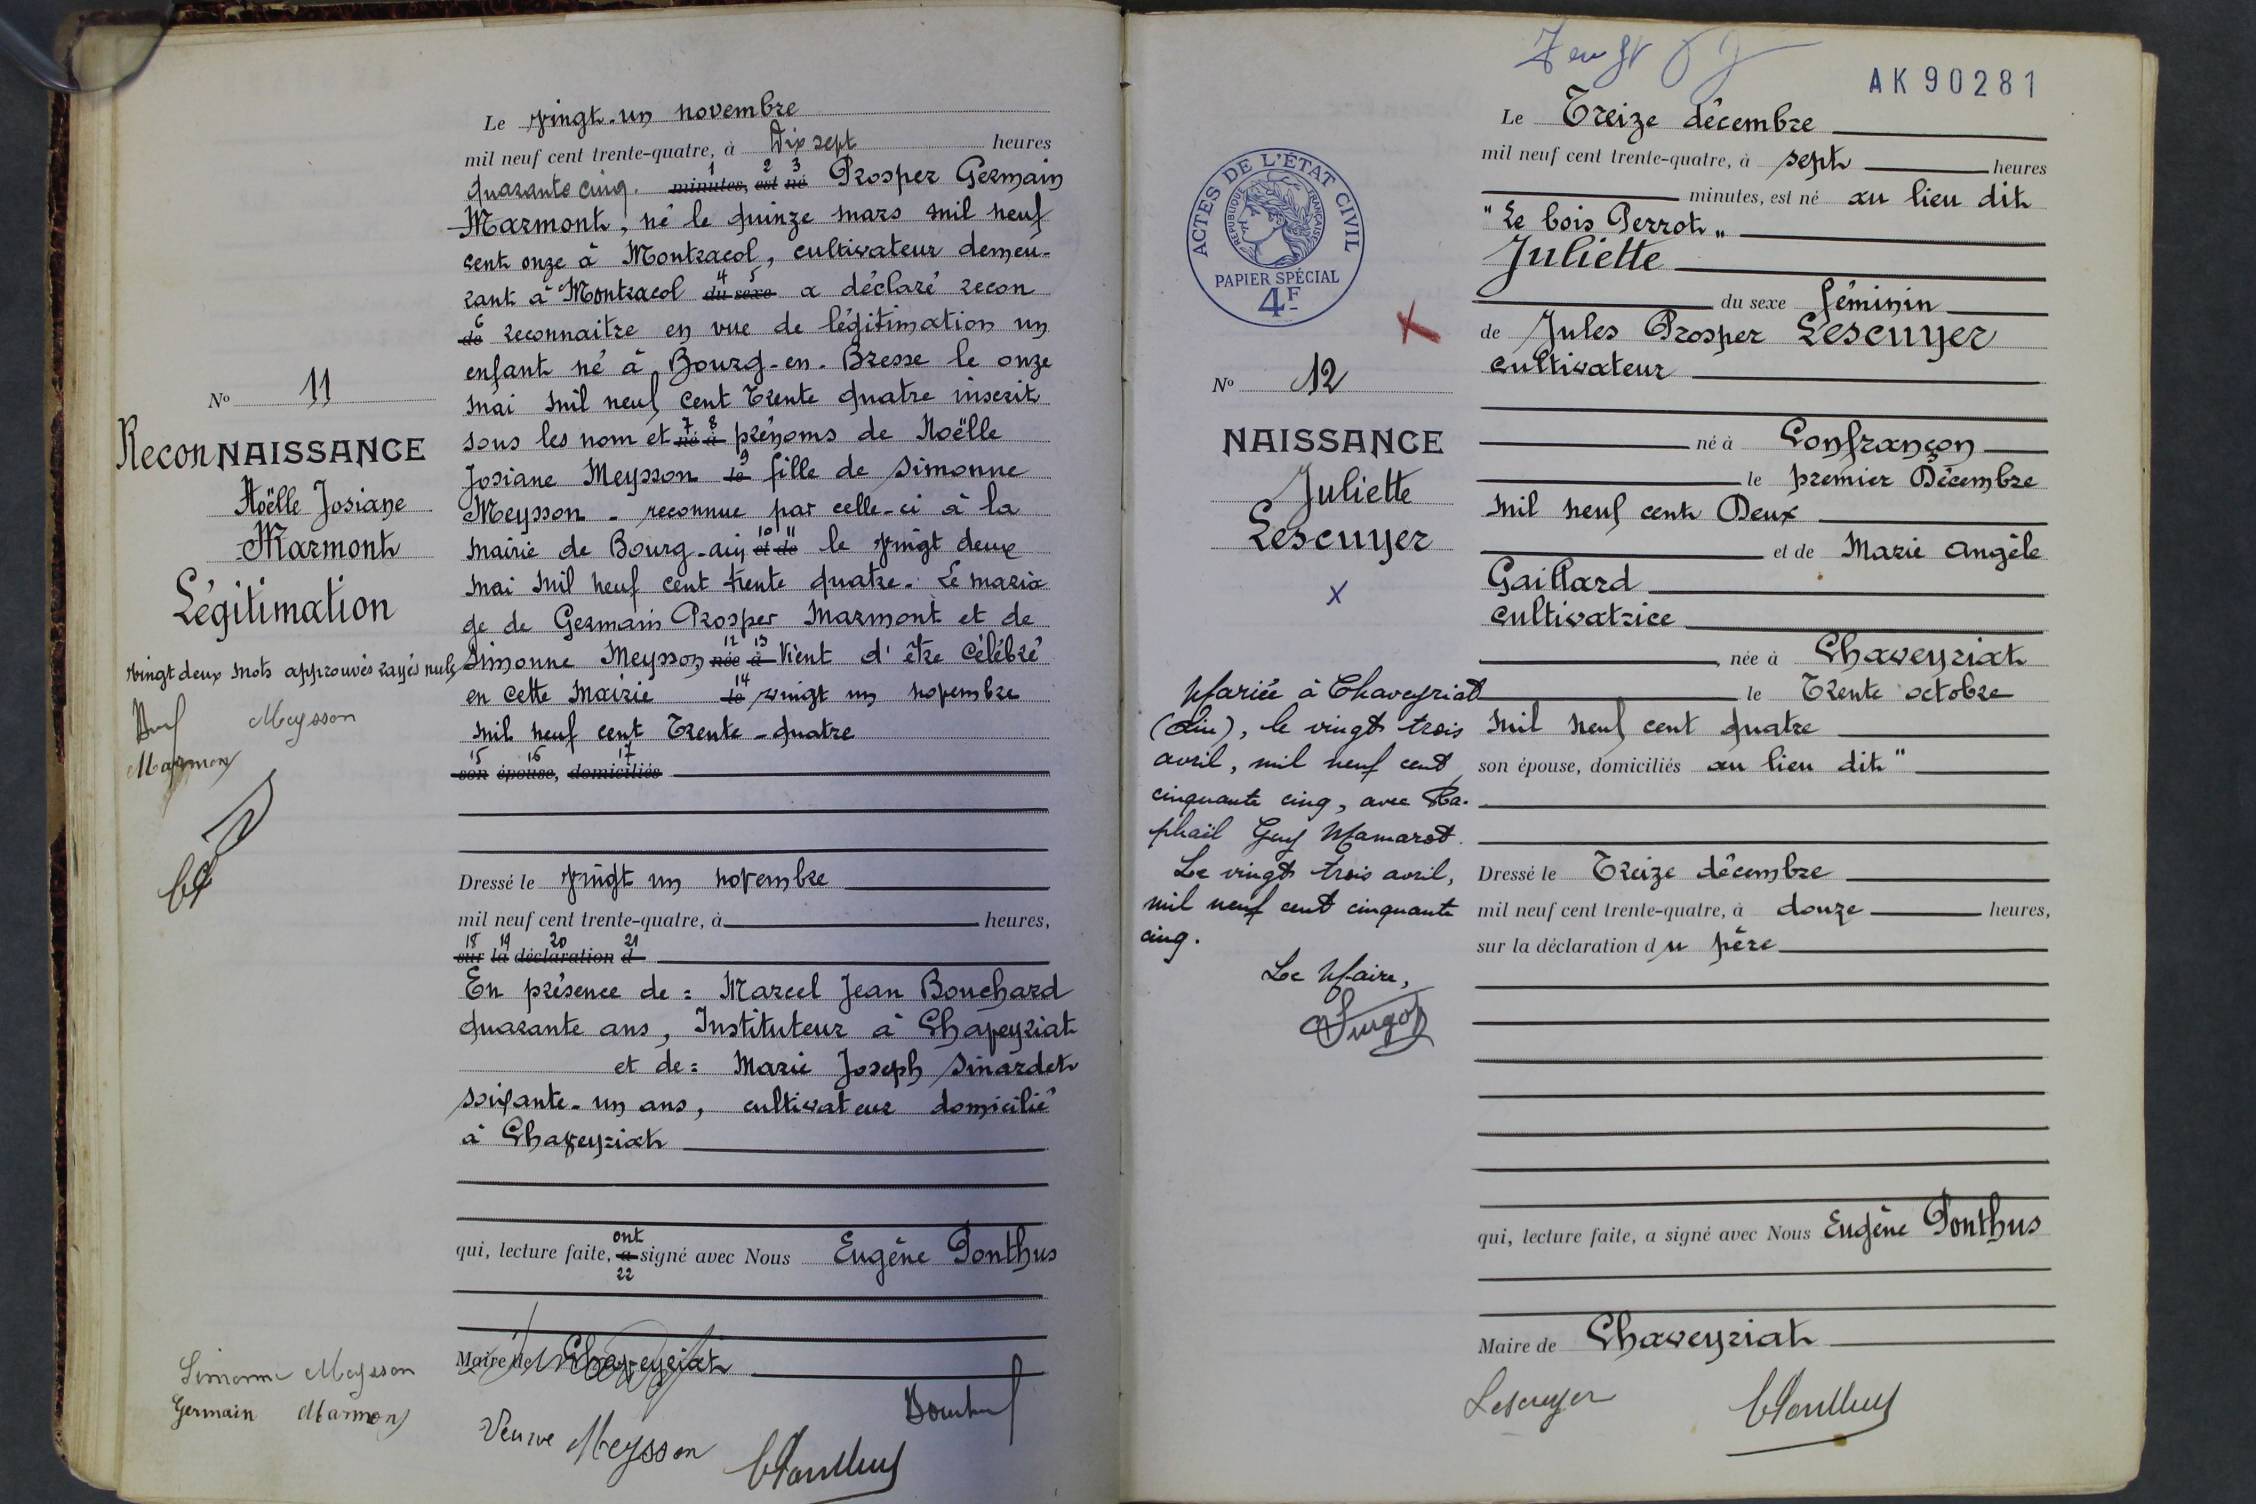 Le vingt-un novembre
mil neuf cent trente-quatre, à Dix sept heures
quarante cinq. minutes, est né Prosper Germain
1 2 3
Marmont, né le quinze mars mil neuf
cent onze à Montracol, cultivateur demeu-
rant à Montracol du sexe a déclaré recon
4 5
de reconnaitre en vue de légitimation un
6
enfant né à Bourg-en-Bresse le onze
mai mil neuf cent Trente quatre inscrit
sous les nom et né à prénoms de Noëlle
7 8
Josiane Meysson le fille de Simonne
9
Meysson - reconnue par celle-ci à la
mairie de Bourg-ain et de le vingt deux
10 11
mai mil neuf cent trente quatre. Le maria
ge de Germain Prosper Marmont et de
Simonne Meysson née à Vient d'être célébré
12 13
en cette Mairie le vingt un novembre
14
mil neuf cent Trente-quatre
15 16 17
son épouse, domiciliés
Dressé le vingt un novembre
mil neuf cent trente-quatre, à heures,
18 19 20 21
sur la déclaration d
En présence de : Marcel Jean Bouchard
quarante ans, Instituteur à Chaveyriat
et de : Marie Joseph Sinardet
soixante-un ans, cultivateur domicilié
à Chaveyriat
ont
qui, lecture faite, a signé avec Nous Eugène Ponthus
22
Maire de Chaveyriat
No 11
ReconNAISSANCE
Noëlle Josiane
Marmont
Légitimation
vingt deux mots approuvés rayés nuls
Meysson
Marmont
Simonne Meysson
Germain Marmont
Veuve Meysson
AK 90281
ACTES DE L'ÉTAT CIVIL
RÉPUBLIQUE FRANÇAISE
PAPIER SPÉCIAL
4F
No 12
NAISSANCE
Juliette
Lescuyer
x
Mariée à Chaveyriat
(Ain), le vingt trois
avril, mil neuf cent
cinquante cinq, avec Ra-
phaël Guy Mamarot.
Le vingt trois avril,
mil neuf cent cinquante
cinq.
Le Maire,
Le Treize décembre
mil neuf cent trente-quatre, à sept heures
minutes, est né au lieu dit
"Le bois Perrot"
Juliette
du sexe féminin
de Jules Prosper Lescuyer
cultivateur
né à Confrançon
le premier Décembre
mil neuf cent Deux
et de Marie Angèle
Gaillard
cultivatrice
, née à Chaveyriat
le Trente octobre
mil neuf cent quatre
son épouse, domiciliés au lieu dit "
Dressé le Treize décembre
mil neuf cent trente-quatre, à douze heures,
sur la déclaration du père
qui, lecture faite, a signé avec Nous Eugène Ponthus
Maire de Chaveyriat
Lescuyer